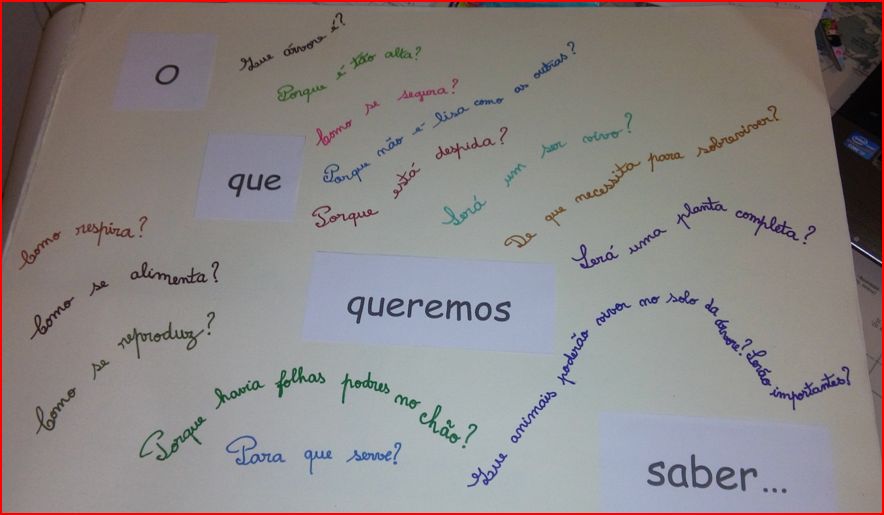 O
Que árvore é?
Porque é tão alta?
Como se segura?
Porque não é lisa como as outras?
que
Porque está despida?
Será um ser vivo?
De que necessita para sobreviver?
Será uma planta completa?
Como respira?
Como se alimenta?
queremos
Como se reproduz?
Que animais poderão viver no solo da árvore? Serão importantes?
Porque havia folhas podres no chão?
Para que serve?
saber...